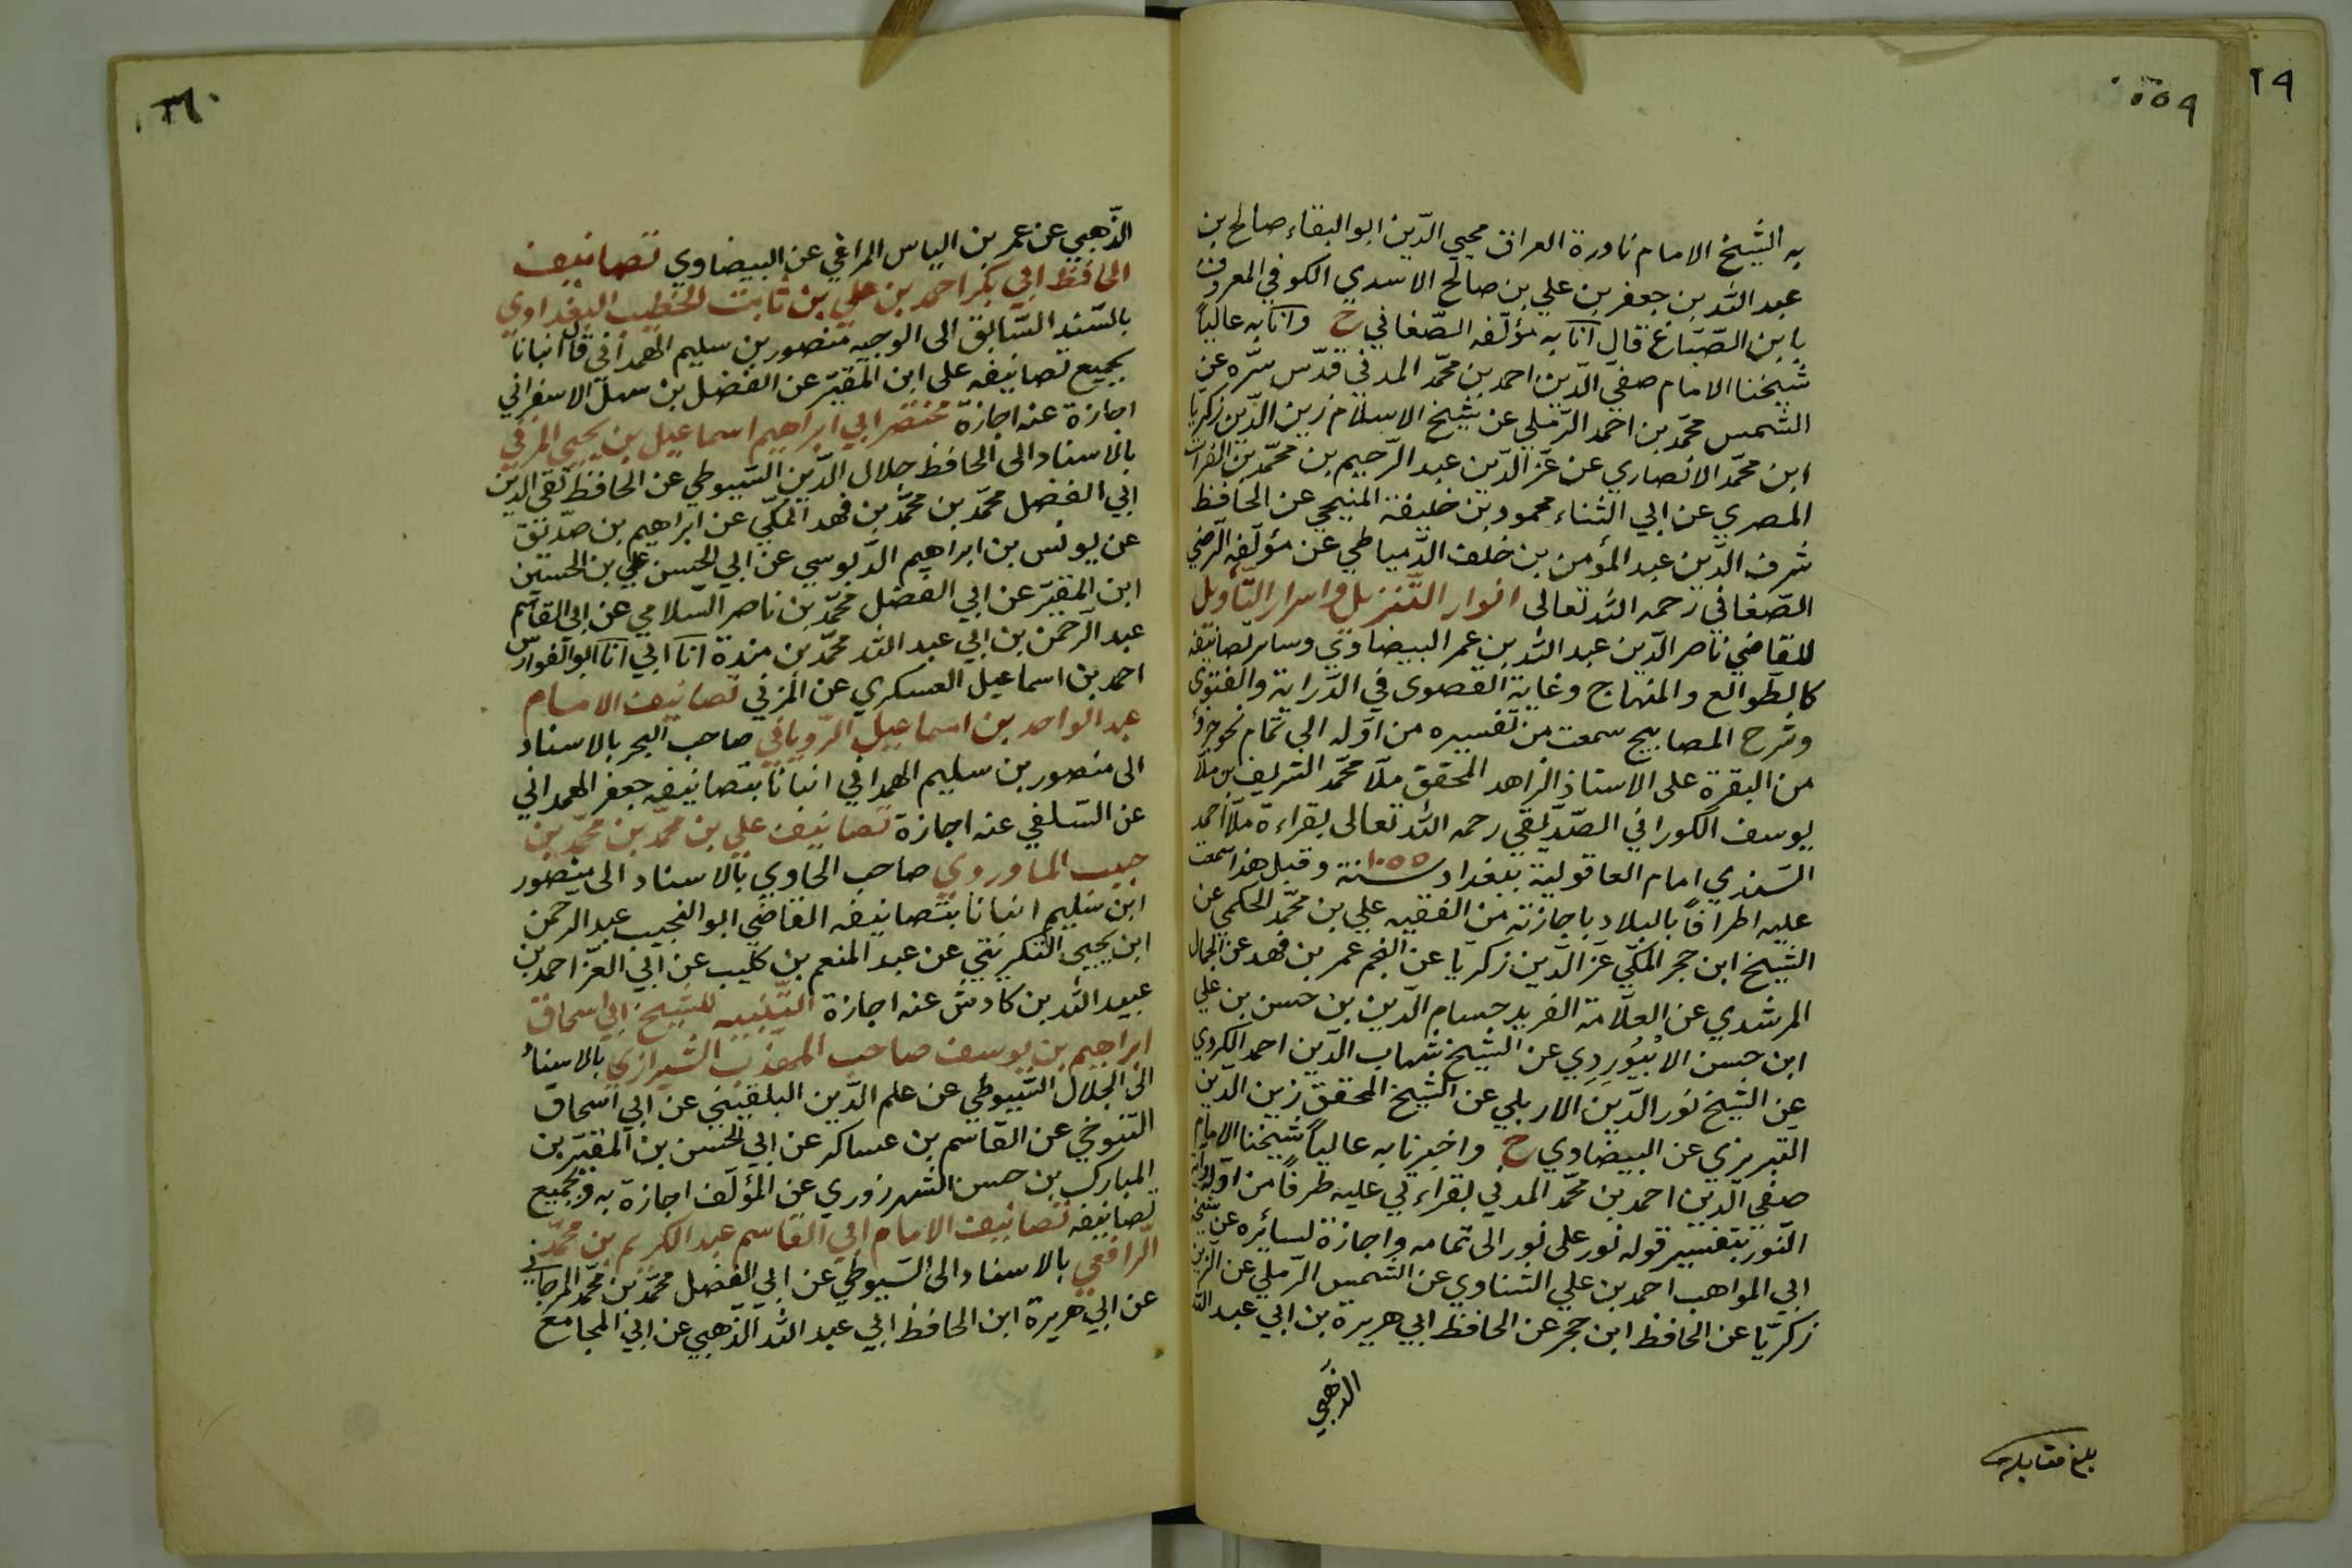 ٢٩
٥٥٩
به الشيخ الامام نادرة العراق محيي الدّين ابو البقاء صالح بن
عبد الله بن جعفر بن علي بن صالح الاسدي الكوفي المعروف
بابن الصّبّاغ قال انا به مؤلّفه الصّغاني ح وانا به عالياً
شيخنا الامام صفيّ الدّين احمد بن محمّد المدني قدّس سرّه عن
الشمس محمّد بن احمد الرّملي عن شيخ الاسلام زين الدّين زكريّا
ابن محمّد الانصاري عن عزّ الدّين عبد الرّحيم بن محمّد بن الفرات
المصري عن ابي الثناء محمود بن خليفة المنبجي عن الحافظ
شرف الدّين عبد المؤمن بن خلف الدّمياطي عن مؤلّفه الرضي
الصّغاني رحمه الله تعالى انوار التّنزيل واسرار التّأويل
للقاضي ناصر الدّين عبد الله بن عمر البيضاوي وسائر تصانيفه
كالطّوالع والمنهاج وغاية القصوى في الدّراية والفتوى
وشرح المصابيح سمعت من تفسيره من اوّله الى تمام نحو جزؤ
من البقرة على الاستاذ الزاهد المحقق ملّا محمّد الشريف بن ملّا
يوسف الكوراني الصّدّيقي رحمه الله تعالى بقراءة ملّا احمد
السّندي امام العاقولية ببغداد سنة ١٠٥٥ وقبل هذا سمعت
عليه اطرافاً بالبلاد باجازته من الفقيه علي بن محمّد الحكمي عن
الشيخ ابن حجر المكّي عن الزّين زكريّا عن النجم عمر بن فهد عن الجمال
المرشدي عن العلّامة الفريد حسام الدّين بن حسن بن علي
ابن حسن الابيوردي عن الشيخ شهاب الدّين احمد الكردي
عن الشيخ نور الدّين الاربلي عن الشيخ المحقق زين الدّين
التبريزي عن البيضاوي ح واخبرنا به عالياً شيخنا الامام
صفي الدّين احمد بن محمّد المدني بقراءتي عليه طرفاً من اوّله
النّور بتفسير قوله نور على نور الى تمامه واجازة لسائره عن شيخه
ابي المواهب احمد بن علي الشناوي عن الشمس الرّملي عن الزين
زكريّا عن الحافظ ابن حجر عن الحافظ ابي هريرة بن ابي عبد الله
الذهبي
بلغ مقابلة
٣٦٠
الذّهبي عن عمر بن الياس المراغي عن البيضاوي تصانيف
الحافظ ابي بكر احمد بن علي بن ثابت الخطيب البغدادي
بالسّند السّابق الى الوجيه منصور بن سليم الهمداني قال انبانا
بجميع تصانيفه علي ابن المقيّر عن الفضل بن سهل الاسفرائني
اجازة عنه اجازة مختصر ابي ابراهيم اسماعيل بن يحيى المزني
بالاسناد الى الحافظ جلال الدّين السّيوطي عن الحافظ تقي الدّين
ابي الفضل محمّد بن محمّد بن فهد المكّي عن ابراهيم بن صدّيق
عن يونس بن ابراهيم الدّبوسي عن ابي الحسن علي بن الحسين
ابن المقيّر عن ابي الفضل محمّد بن ناصر السّلامي عن ابي القاسم
عبد الرّحمن بن ابي عبد الله محمّد بن مندة انا ابي انا ابو الفوارس
احمد بن اسماعيل العسكري عن المزني تصانيف الامام
عبد الواحد بن اسماعيل الرّوياني صاحب البحر بالاسناد
الى منصور بن سليم الهمداني انبانا بتصانيفه جعفر الهمداني
عن السّلفي عنه اجازة تصانيف علي بن محمّد بن محمّد بن
حبيب الماوردي صاحب الحاوي بالاسناد الى منصور
ابن سليم انبانا بتصانيفه القاضي ابو النجيب عبد الرحمن
ابن يحيى التكريتي عن عبد المنعم بن كليب عن ابي العزّ احمد بن
عبيد الله بن كادش عنه اجازة التّنبيه للشّيخ ابي اسحاق
ابراهيم بن يوسف صاحب المهذّب الشّيرازي بالاسناد
الى الجلال السّيوطي عن علم الدّين البلقيني عن ابي اسحاق
التنوخي عن القاسم بن عساكر عن ابي الحسن بن المقيّر بن
المبارك بن حسن الشهرزوري عن المؤلّف اجازة به وبجميع
تصانيفه تصانيف الامام ابي القاسم عبد الكريم بن محمّد
الرّافعي بالاسناد الى السّيوطي عن ابي الفضل محمّد بن محمّد المرجاني
عن ابي هريرة ابن الحافظ ابي عبد الله الذّهبي عن ابي المجامع